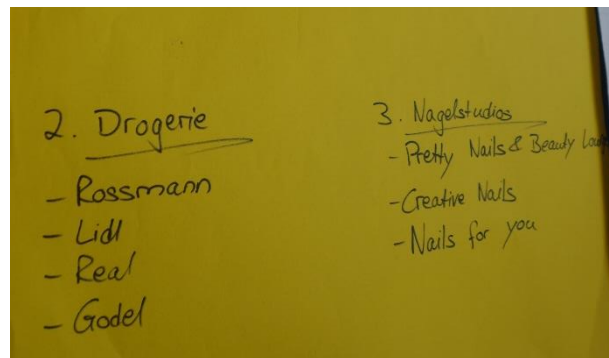 2. Drogerie
- Rossmann
- Lidl
- Real
- Godel
3. Nagelstudios
- Pretty Nails & Beauty
- Creative Nails
- Nails for you